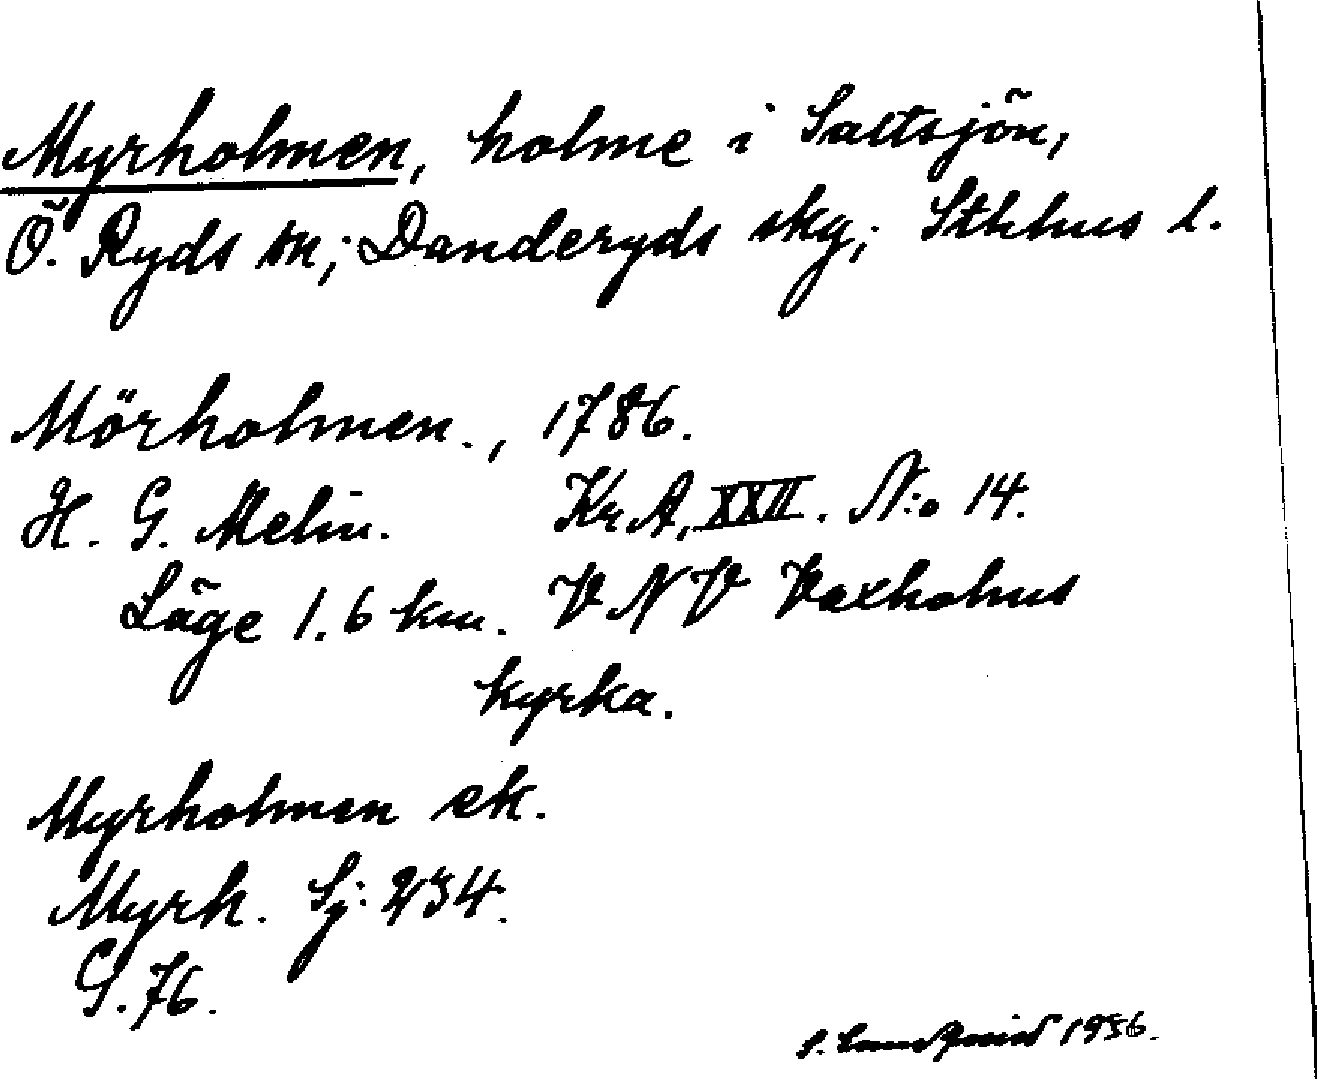 Myrholmen, holme i Saltsjön,
Ö. Ryds sn; Danderyds skg; Sthlms l.
Mörholmen., 1786.
H. G. Melin. Kr A, XXII. N:o 14.
Läge 1.6 km. V N V Vaxholms
kyrka.
Myrholmen ek.
Myrh. Sj: 234.
G. 76.
S. 1936.